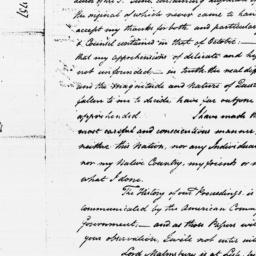 the original of which never came to han
accept my thanks for both and particular
& Counsel contained in that of October
that my apprehensions of delicate and
not unfounded — in truth the real
and the magnitude and Nature of
fallen to me to decide, have far outgone
apprehended. I have made th
most careful and conscientious manner,
neither this Nation, nor any Individua
nor my Native Country, my friends or
what I done.
The History of our Proceedings is
communicated by the American Comm
Government, — and as those Papers wi
your observation, I will not enter into
Lord Malmsbury is at Lisle,